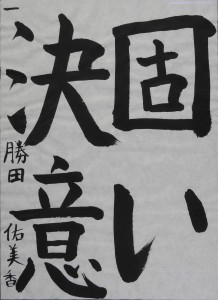 固い
決意
一 勝田 佑美香